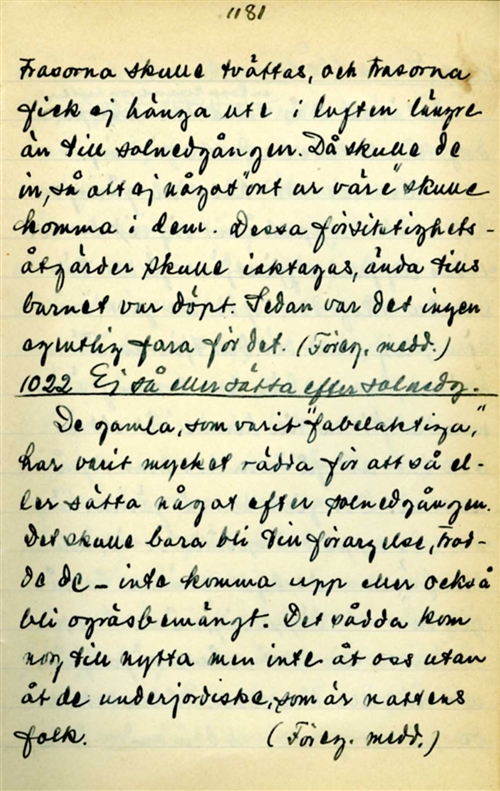 1181
Trasorna skulle tvättas, och trasorna
fick ej hänga ute i luften längre
än till solnedgången. Då skulle de
in, så att ej något "ont ur väre" skulle
komma i dem. Dessa försiktighets-
åtgärder skulle iakttagas, ända tills
barnet var döpt. Sedan var det ingen
egentlig fara för det. (Föreg. medd.)
1022 Ej så eller sätta efter solnedg.
De gamla, som varit "fabelaktiga,"
har varit mycket rädda för att så el-
ler sätta något efter solnedgången.
Det skulle bara bli till förargelse, trod-
de de - inte komma upp eller också
bli ogräsbemängt. Det sådda kom
nog till nytta men inte åt oss utan
åt de underjordiske, som är nattens
folk. (Föreg. medd.)